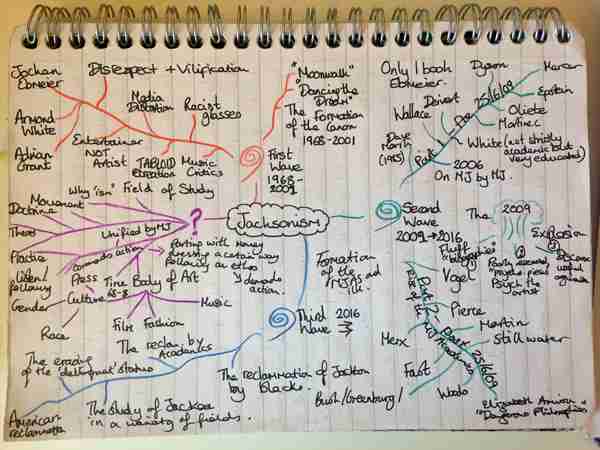 Jochan
Ebmeier
Disrespect + Vilification
Armond
White
Media
Distortion
Racist
glasses
Adrian
Grant
Entertainer
NOT
Artist
TABLOID
Creation
Music
Critics
"Moonwalk"
"Dancing the
Dream"
The Formation
of the Canon
1968-2001
First
Wave
1968-
2009
Only 1 book
Ebmeier.
Dyson
Mercer
Epstein
Wallace
Deivert
Oliete
Martinec
Dave
Marsh
(1985)
Part 1 Pre 25/6/09
White (not strictly
academic but
very educated)
2006
On MJ by MJ.
Why "ism"
Field of Study
Movement
Doctrine
Theory
Practice
Unified by MJ
?
Jacksonism
parting with money
dressing a certain way
following an ethos
Listen/
following
Press
Time
Body of Art
Gender
Culture
Music
Race
Film
Fashion
Second
Wave
2009→2016
The
2009
Explosion
Fluff
Formation
of the
MJAS and
Poorly executed
"psycho pieces"
Psych the
artist
Vogel
Pierce
Martin
Stillwater
Part 2 Post 25/6/09
Rise of the MJ Academics
Merx
Fast
Woodo
Bush/Greenburg/
Elizabeth Amisu
"Dangerous Philosophies"
Third
Wave
2016
The reclam. by
Academics
The erading
of the "delinquent" status
The reclammation of Jackson
by Blacks.
American
reclammation
The study of Jackson
in a variety of fields.